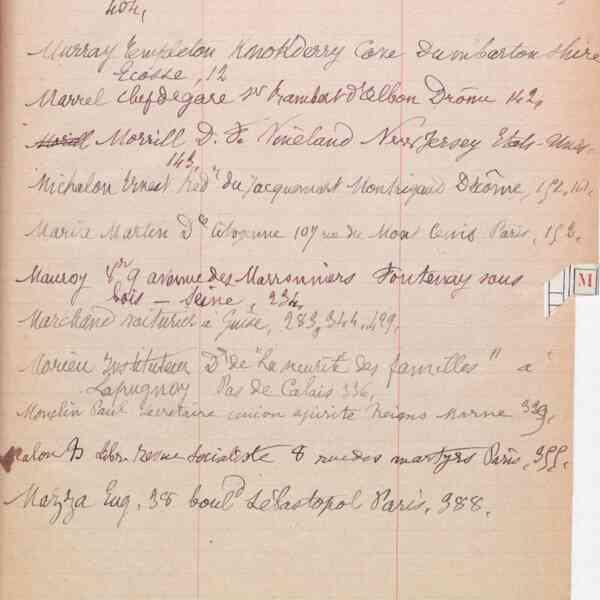 404,
Murray Templeton Knokderry Cove Dumbartonshire
Ecosse, 12
Marrel chef de gare St Rambert d'Albon Drôme 142,
Morrill Morrill D. F. Vineland New Jersey Etats-Unis
143,
Michalon Ernest Réd^r du Jacquemart Montrigaud Drôme, 152,
Maria Martin D^ce Citoyenne 107 rue du Mont Cenis Paris, 153,
Mauroy 9 avenue des Marronniers Fontenay sous
bois - Seine, 234,
Marchand voiturier à Guise, 283, 344, 499,
Morieu Instituteur D^r de "La des familles" à
Lapugnoy Pas de Calais 336,
Monclin Paul Secrétaire union spirite Reims Marne 339,
Malon B Libr. revue socialiste 8 rue des martyrs Paris, 355,
Mazza Eug. 38 boul^d Sébastopol Paris, 388,
M